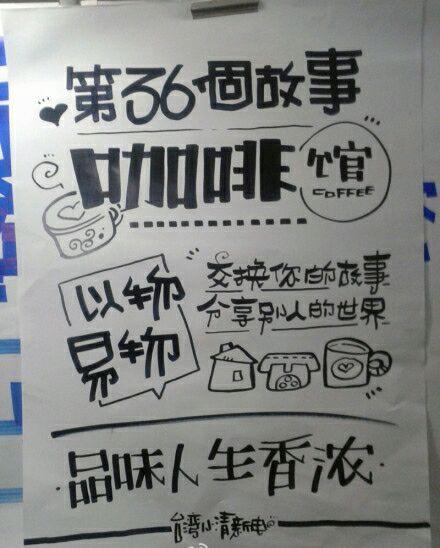 第36個故事
咖啡館
COFFEE
以物
易物
交换你的故事
分享别人的世界
品味人生香浓
台湾小清新电